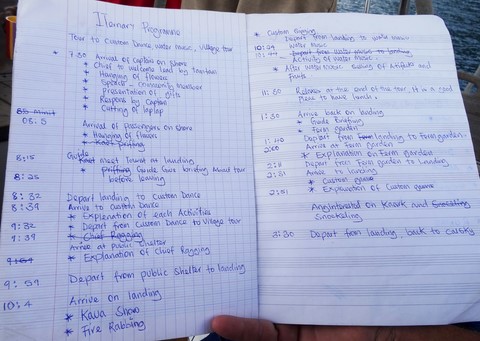 Itenary Programme
Tour to Custom Dance, water music, Village tour
* 7:30 Arrival of Captain on shore
* Chief to welcome lead by tamtam
* Hanging of flowers
* Speech - community
* presentation of gifts
* Respons by Captain
* Cutting of laplap
08:5
Arrival of passengers on shore
* Hanging of flowers
8:15 Guide meet tourist on landing
8:25 * Guide briefing about tour before leaving
8:32 Depart landing to Custom Dance
8:39 Arrive to Custom Dance
* Explenation of each Activities
9:32 * Depart from Custom Dance to Village tour
9:39 * Chief Ragging
Arrive at public shelter
* Explanation of Chief Ragging
9:59 Depart from public shelter to landing
10:4 Arrive on landing
* Kava Show
* Fire Rabbing
* Custom
Depart from landing to water music
10:49 water music
Depart from water music to landing
- Activity of water music.
* After water music. Selling of Artifacts and Fruits
11:30 Release at the end of the tour, it is a good place to have lunch.
1:30 Arrive back on landing
* Guide briefing
* Farm garden
1:40 Depart from landing to Farm garden.
2:00 Arrive at Farm garden
* Explanation on Farm garden
Depart from Farm garden to Landing
Arrive to landing
* Custom game
2:51 * Explanation of Custom game
on Kayak and Snockling
3:30 Depart from landing back to